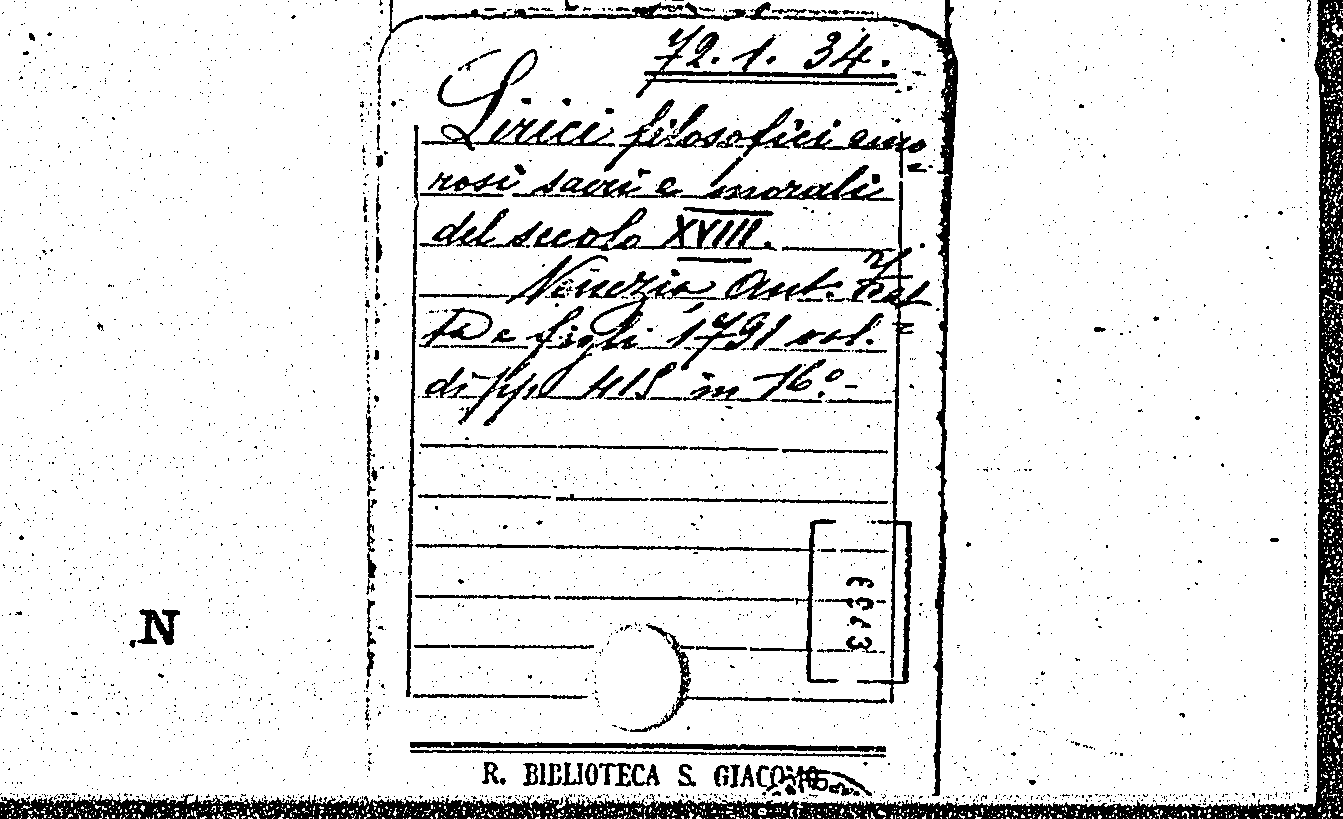 72.1.34.
Lirici filosofici amo=
rosi sacri e morali
del secolo XVIII.
Venezia Ant. Zat=
ta e figli 1791 vol.
di pp 415 in 16.o-
N
R. BIBLIOTECA S. GIACOMO